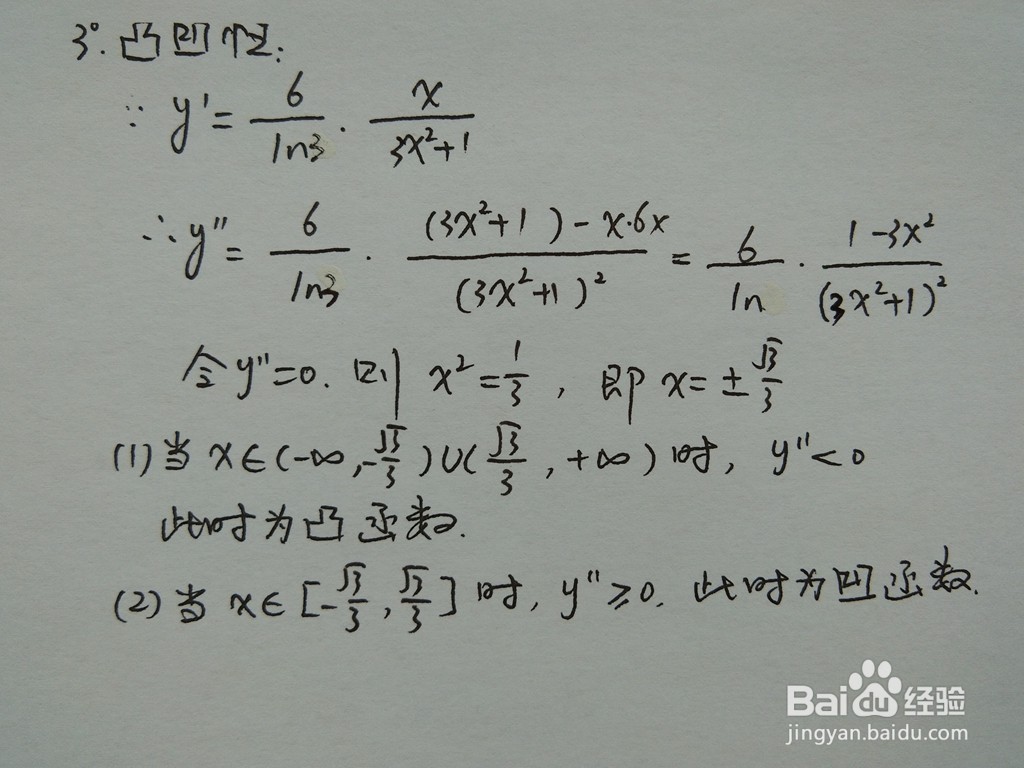 3°. 凸凹性.
∵ y' = 6/ln3 · x/(3x²+1)
∴ y'' = 6/ln3 · ((3x²+1)-x·6x)/(3x²+1)² = 6/ln · (1-3x²)/(3x²+1)²
令y''=0. 则 x²=1/3, 即 x=±√3/3
(1) 当 x∈(-∞,-√3/3)∪(√3/3,+∞) 时, y''<0
此时为凸函数.
(2) 当 x∈[-√3/3,√3/3] 时, y''≥0. 此时为凹函数.
Baidu经验
jingyan.baidu.com